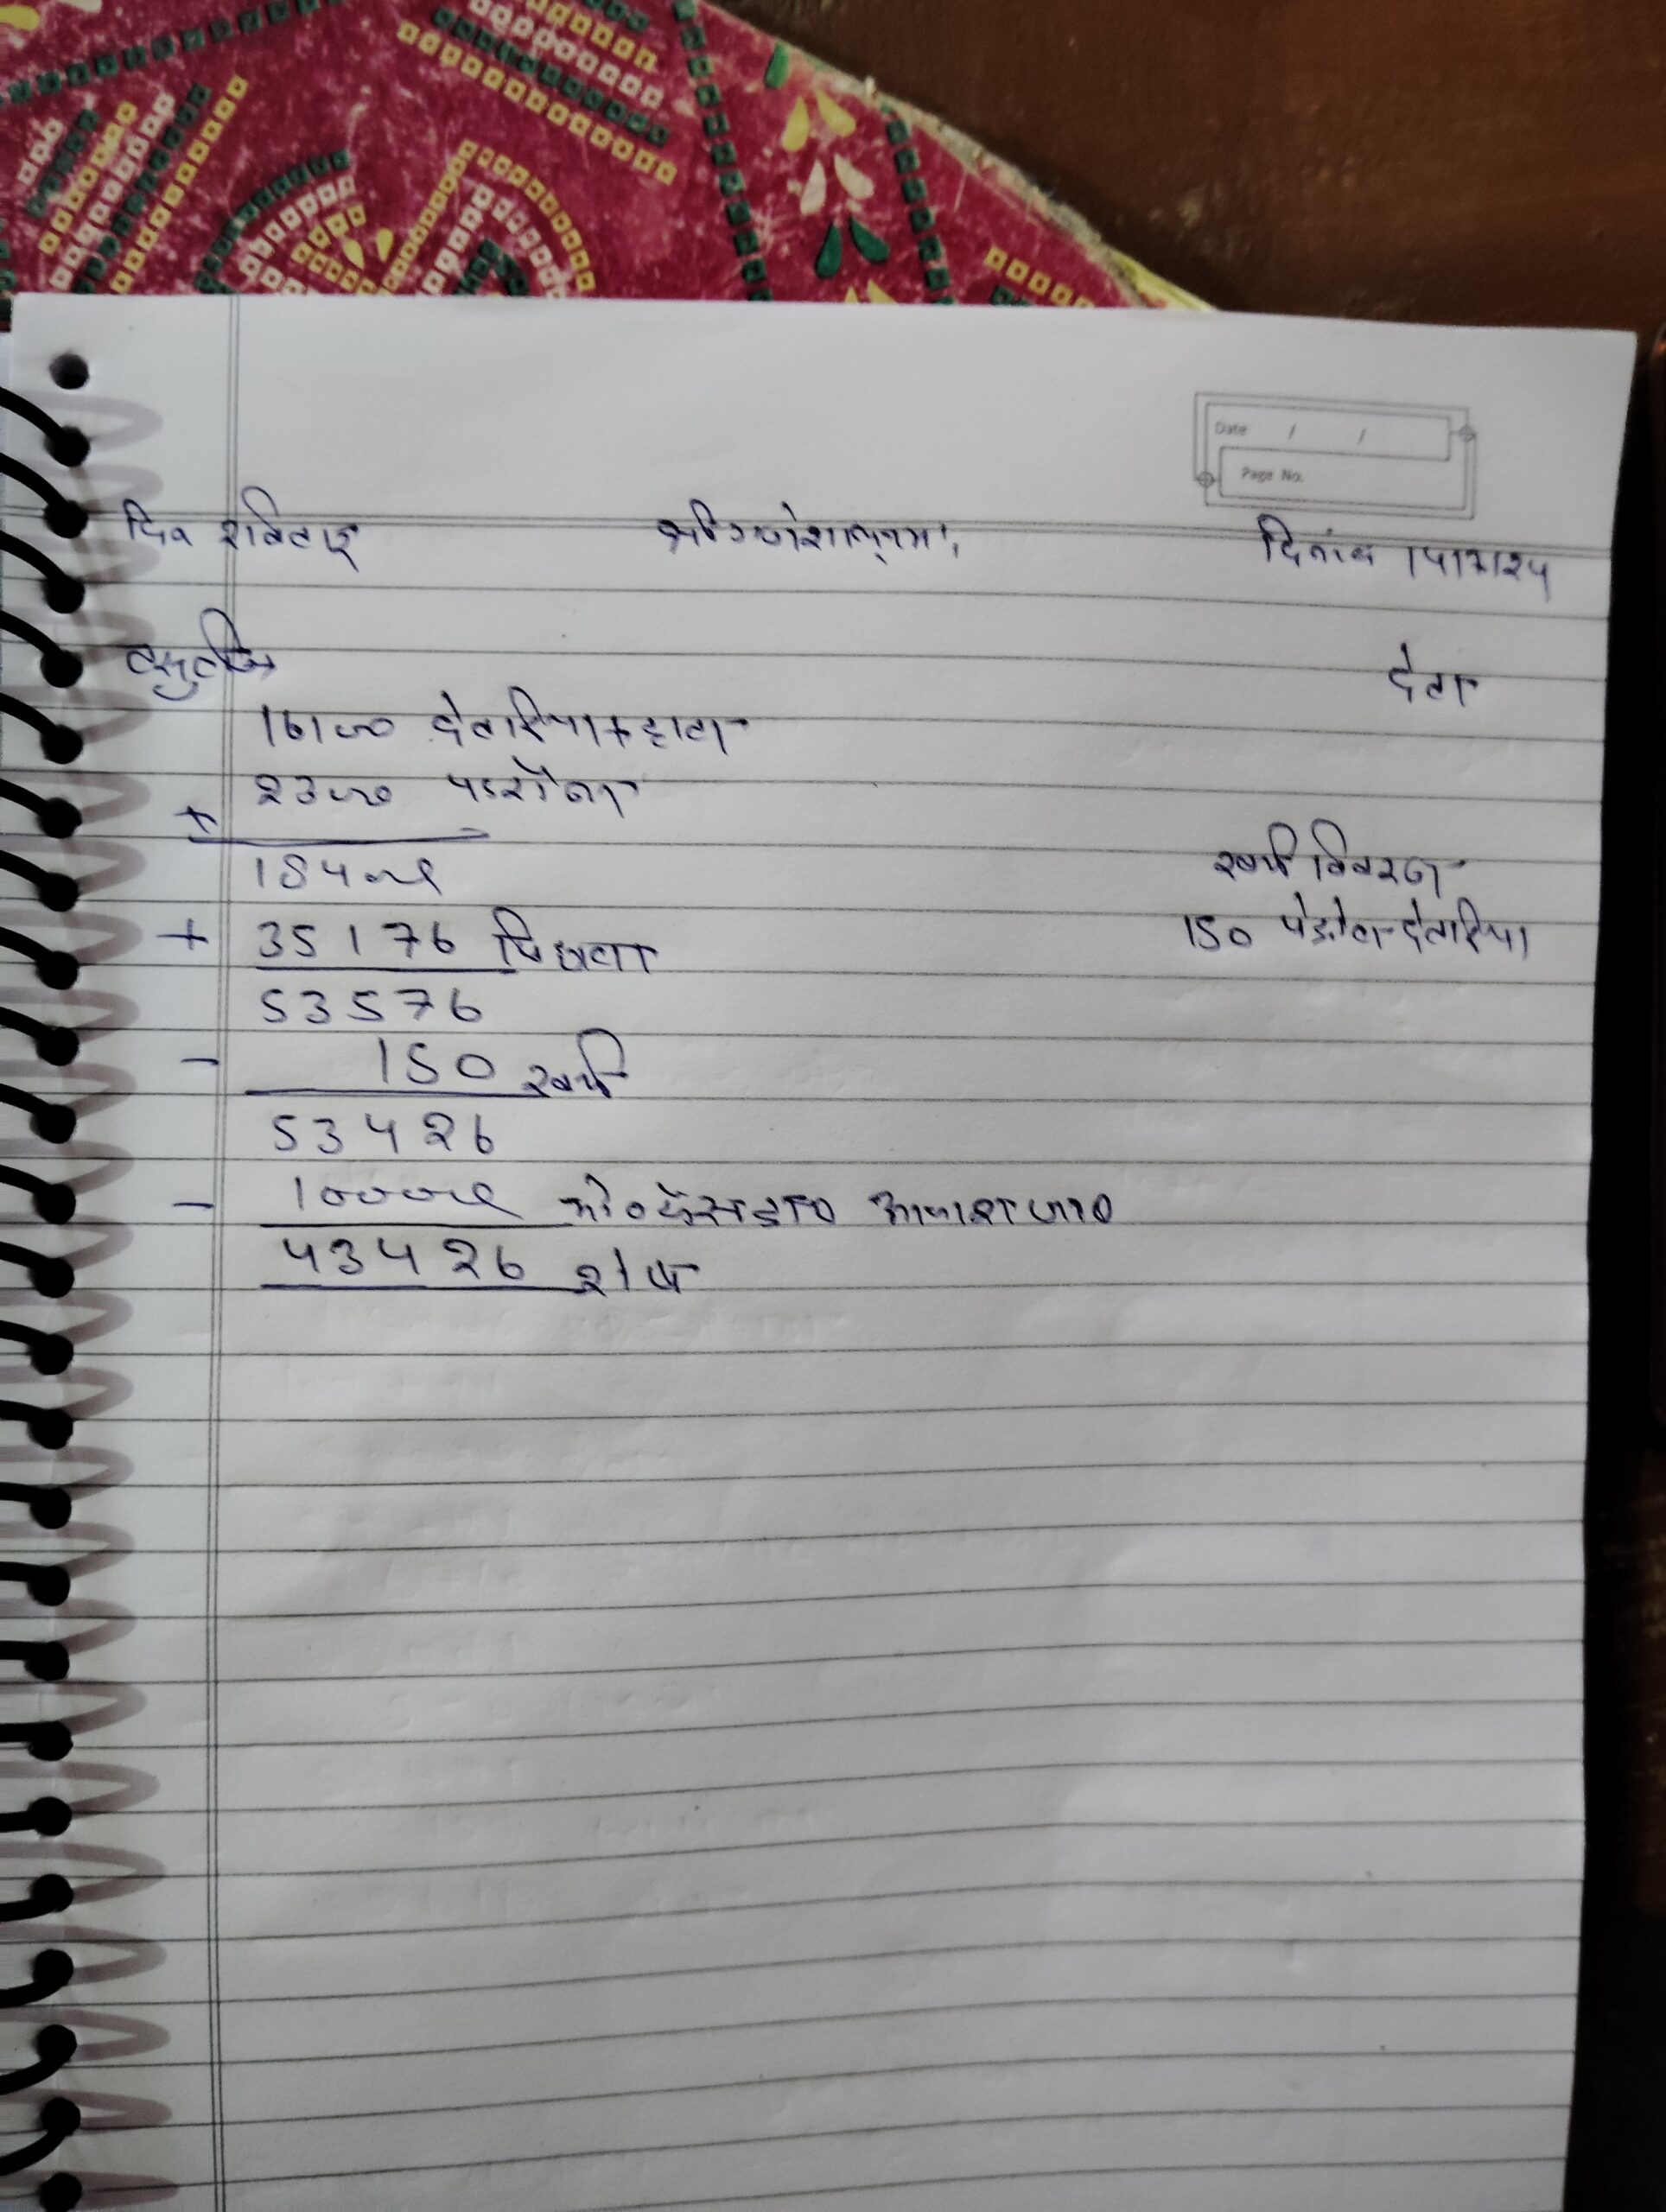 Date / /
Page No.
दिन रविवार
श्री गणेशाय नमः
दिनांक 14/7/24
वसुली
देना
16100 देवरिया + हाटा
2300 पडरौना
+
18400
+ 35176 पिछला
53576
- 150 खर्च
53426
- 10000
43426 शेष
खर्च विवरण
150 पेट्रोल देवरिया